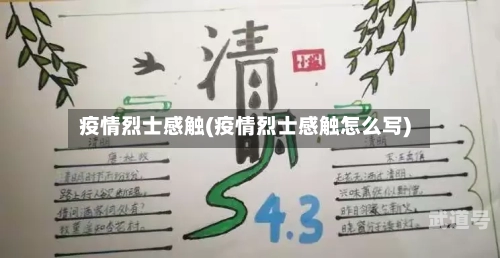 清
疫情烈士感触(疫情烈士感触怎么写)
清明
唐·杜牧
清明时节雨纷纷,
路上行人欲断魂。
借问酒家何处有?
牧童遥指杏花村。
清明
宋·王禹偁
无花无酒过清明,
兴味萧然似野僧。
昨日邻家乞新火,
晓窗分与读书灯。
4.3
武道号